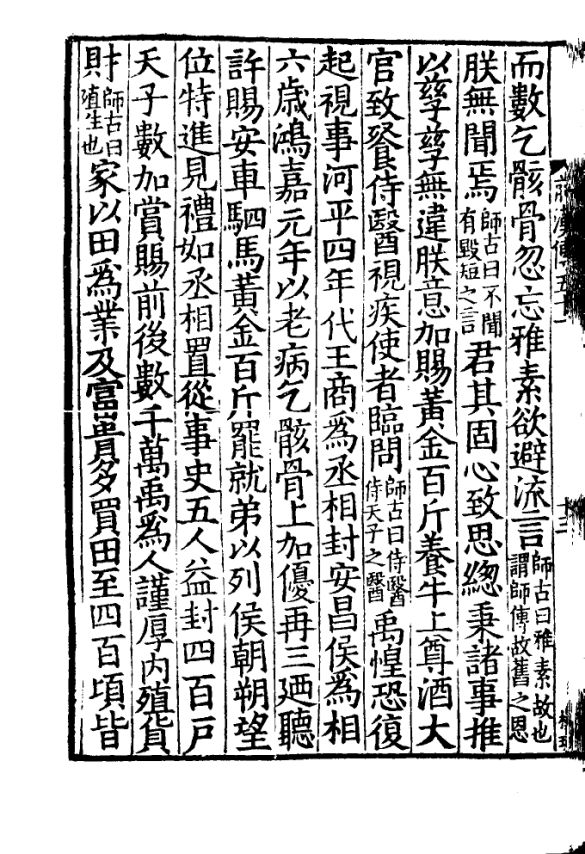 而數乞骸骨忽忘雅素欲避流言師古曰雅素故也謂師傅故舊之恩
朕無聞焉師古曰不聞有毀短之言君其固心致思總秉諸事推
以孳孳無違朕意加賜黃金百斤養牛上尊酒大
官致飡侍醫視疾使者臨問師古曰侍醫侍天子之醫禹惶恐復
起視事河平四年代王商爲丞相封安昌侯爲相
六歲鴻嘉元年以老病乞骸骨上加優再三廼聽
許賜安車駟馬黃金百斤罷就弟以列侯朝朔望
位特進見禮如丞相置從事史五人益封四百戶
天子數加賞賜前後數千萬禹爲人謹厚內殖貨
財師古曰殖生也家以田爲業及富貴多買田至四百頃皆